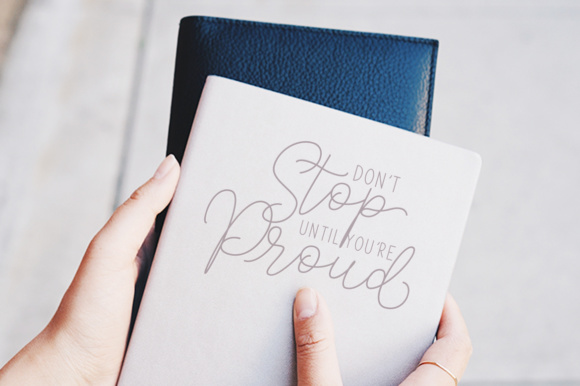 DON'T
Stop
UNTIL YOU'RE
Proud